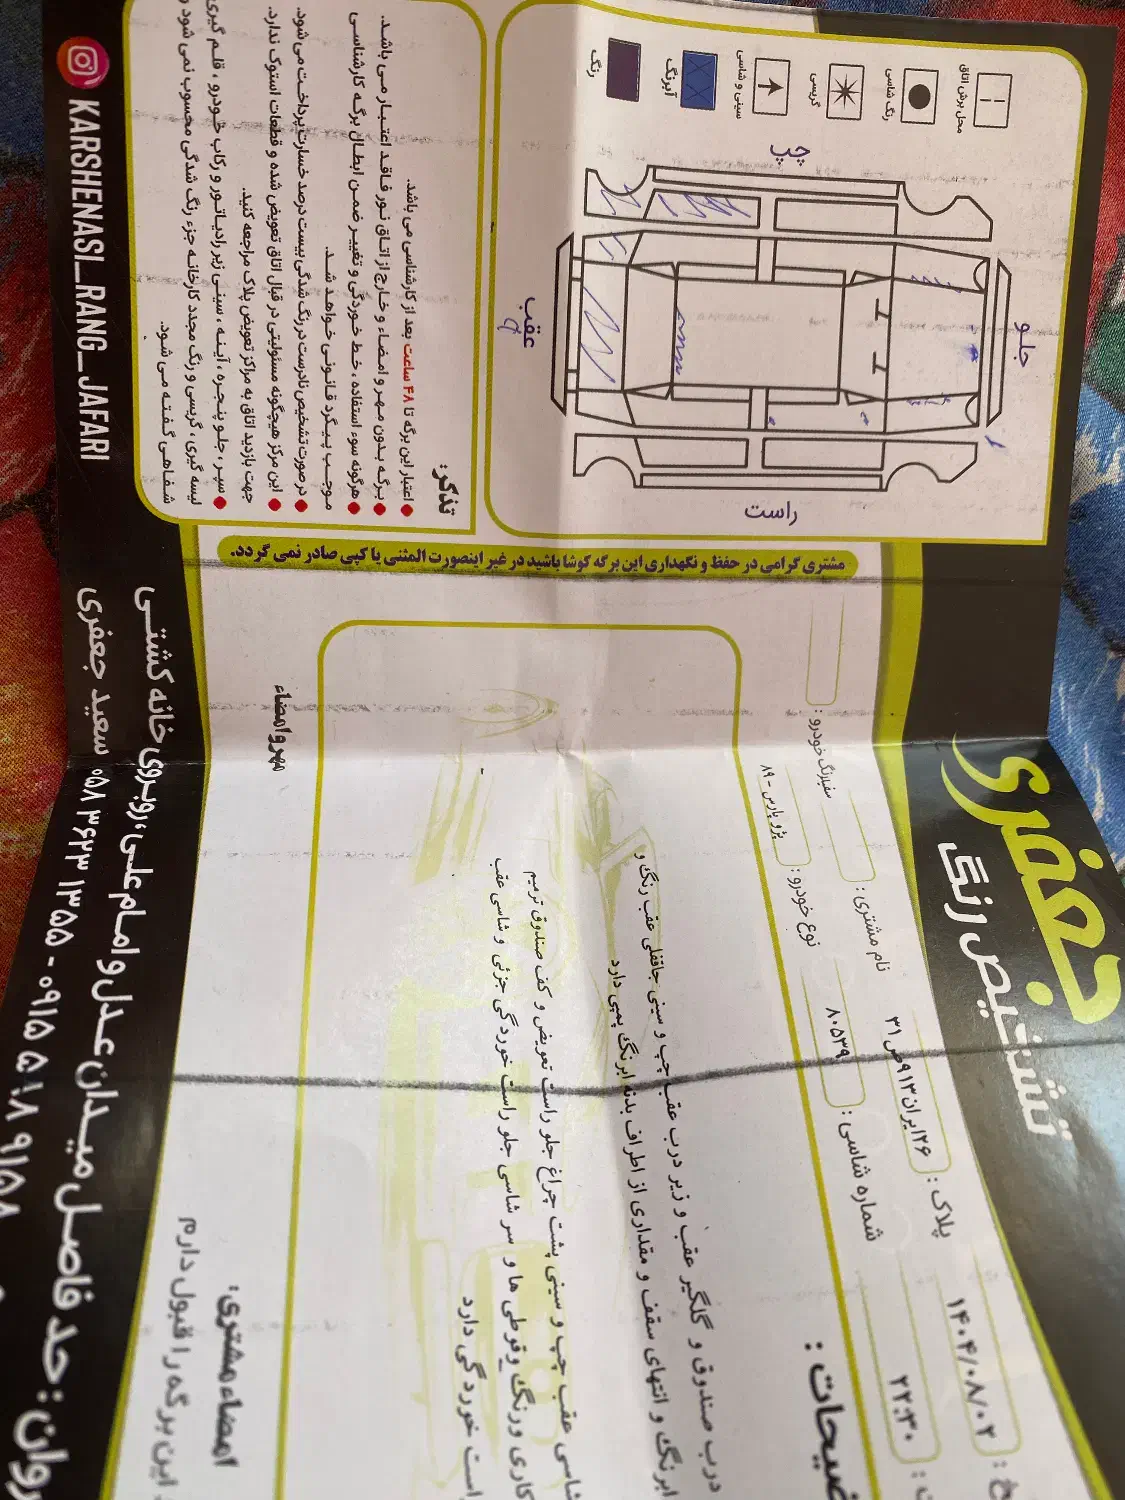 جعفری
تشخیص رنگ
۱۴۰۴/۰۸/۰۲
پلاک :
۲۶ایران۹۱۳ص۳۱
نام مشتری :
۲۲:۳۰
شماره شاسی :
۸۰۵۳۹
نوع خودرو :
پژو پارس - ۸۹
سفیلرنگ خودرو :
درب صندوق و گلگیر عقب و زیر درب عقب چپ و سینی جاقفلی عقب رنگ و
ابرنگ و انتهای سقف و مقداری از اطراف بدنه ابرنگ پمپی دارد
شاسی عقب چپ و سینی پشت چراغ جلو راست تعویض و کف صندوق ترمیم
کاری ورنگ وقوطی ها و سر شاسی جلو راست خوردگی جزئی و شاسی عقب
است خوردگی دارد
مهر و امضاء
امضاء مشتری:
این برگه را قبول دارم
مشتری گرامی در حفظ و نگهداری این برگه کوشا باشید در غیر اینصورت المثنی یا کپی صادر نمی گردد.
محل برش اتاق
رنگ شاسی
گریسی
سینی و شاسی
آبرنگ
رنگ
چپ
جلو
عقب
راست
تذکر:
اعتبار این برگه تا ۴۸ ساعت بعد از کارشناسی می باشد.
برگه بدون مهر و امضاء و خارج از اتاق نور فاقد اعتبار می باشد.
هرگونه سوء استفاده ، خط خوردگی و تغییر ضمن ابطال برگه کارشناسی
موجب پیگرد قانونی خواهد شد.
درصورت تشخیص نادرست در رنگ شدگی بیست درصد خسارت پرداخت می شود.
این مرکز هیچگونه مسئولیتی در قبال اتاق تعویض شده و قطعات استوک ندارد.
جهت بازدید اتاق به مراکز تعویض پلاک مراجعه کنید.
سپر ، جلو پنجره ، آینه ، سینی زیر رادیاتور و رکاب خودرو ، قلم گیری
لیسه گیری ، گریسی و رنگ مجدد کارخانه جزء رنگ شدگی محسوب نمی شود و
شفاهی گفته می شود.
KARSHENASI_RANG_JAFARI
حد فاصل میدان عدل و امام علی، روبروی خانه کشتی
سعید جعفری
۰۵۸ ۳۶۲۳ ۱۳۵۵ - ۰۹۱۵ ۵۸۰۸ ۹۱۵۸